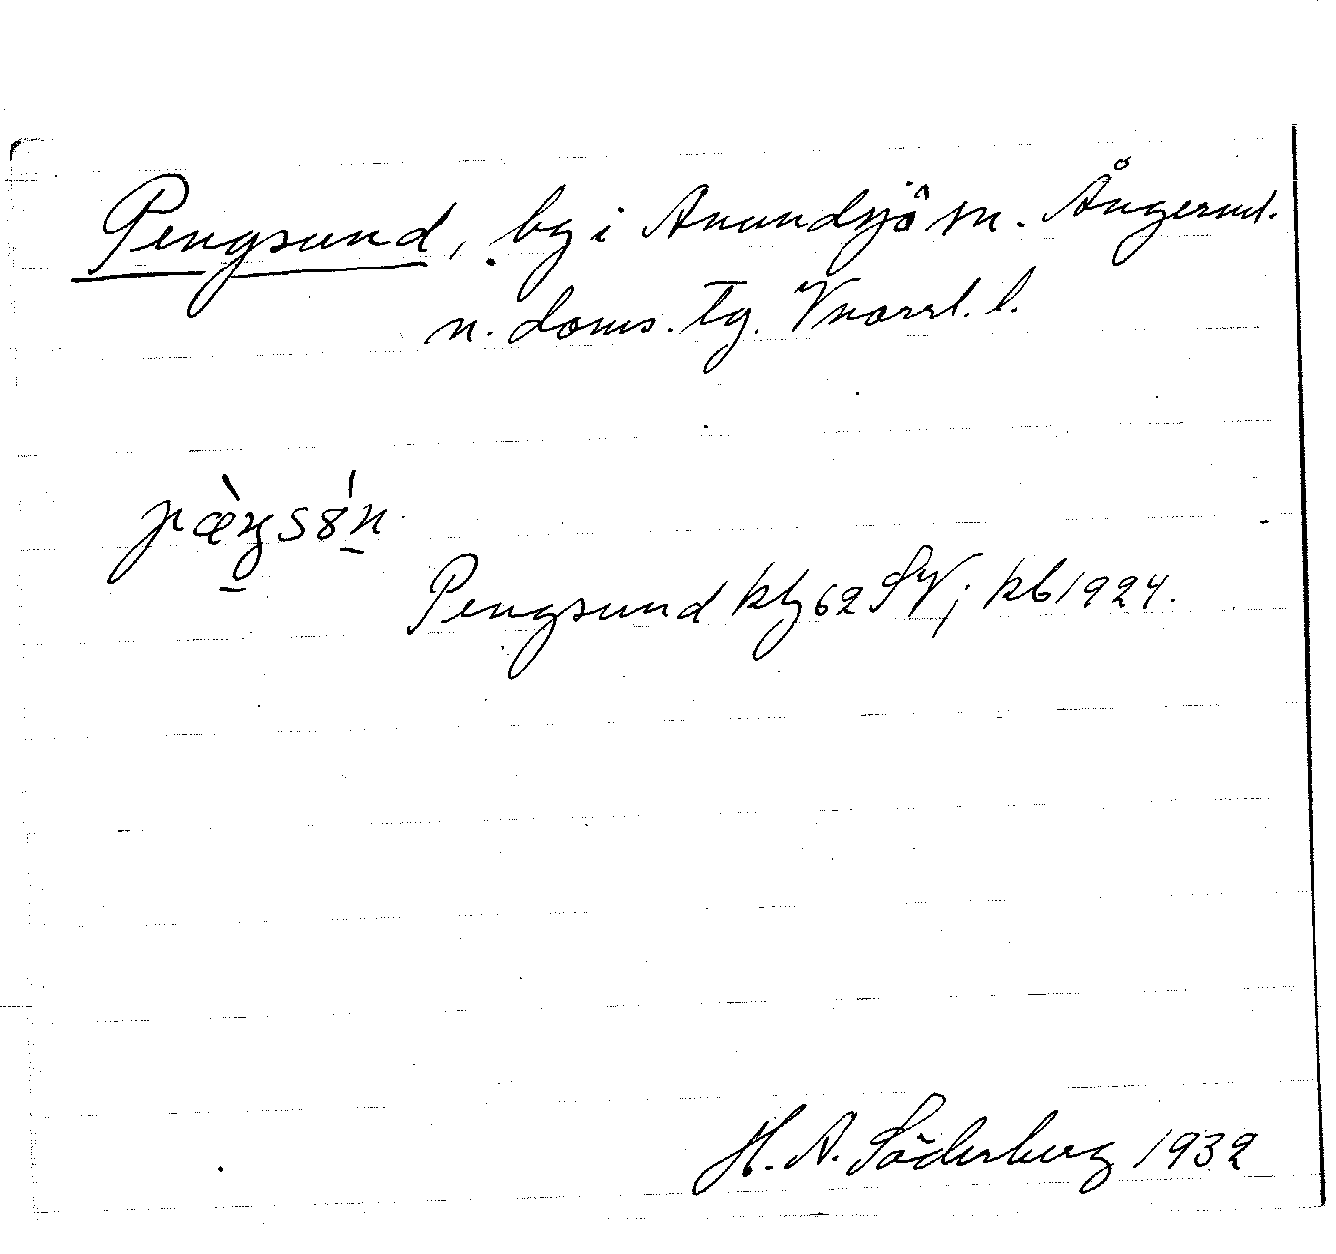 Pengsund, by i Anundsjö sn. Ångerml.
n. doms. tg. Vnorrl. l.
pæ̀ŋsón
Pengsund kbg 62 SV; kb 1924.
H. A. Söderberg 1932